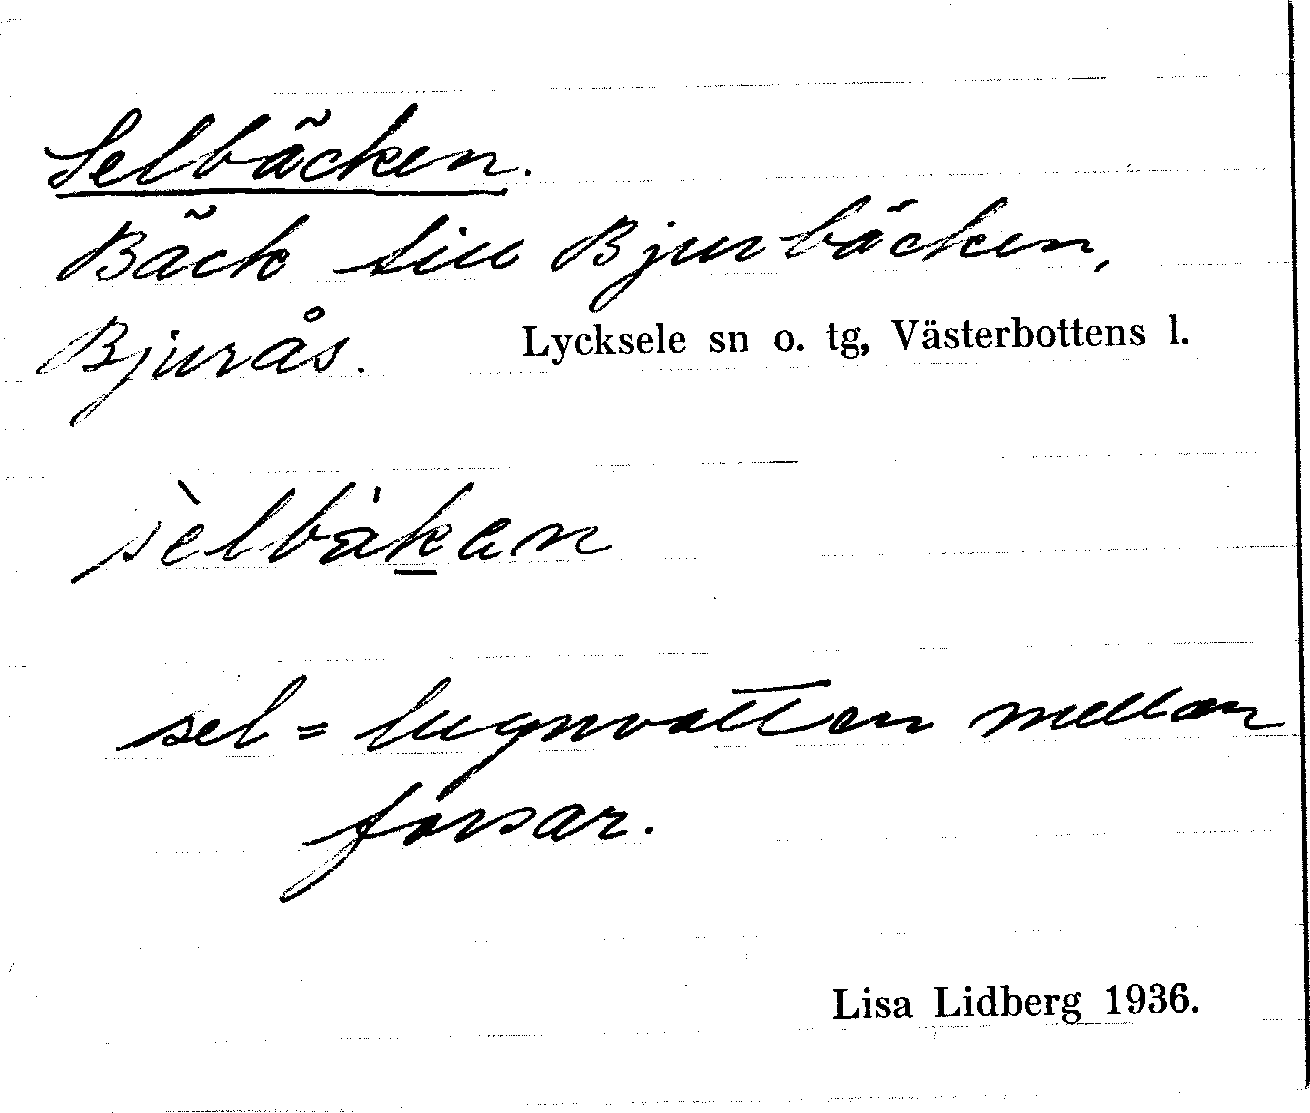 Selbäcken.
Bäck till Bjurbäcken,
Bjurås. Lycksele sn o. tg, Västerbottens l.
sèlbàkan
sel = lugnvatten mellan
forsar.
Lisa Lidberg 1936.